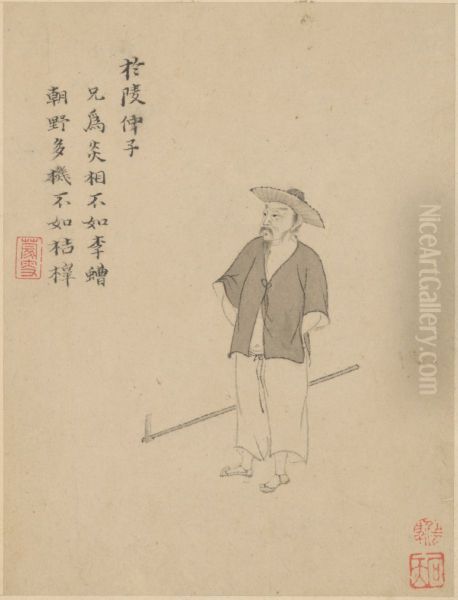 於陵仲子
兄爲炎相不如李螬
朝野多機不如桔槔
NiceArtGallery.com